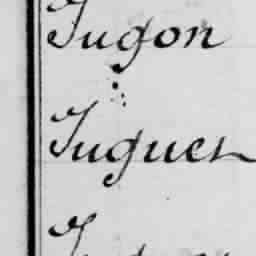 Jugon
Juguet